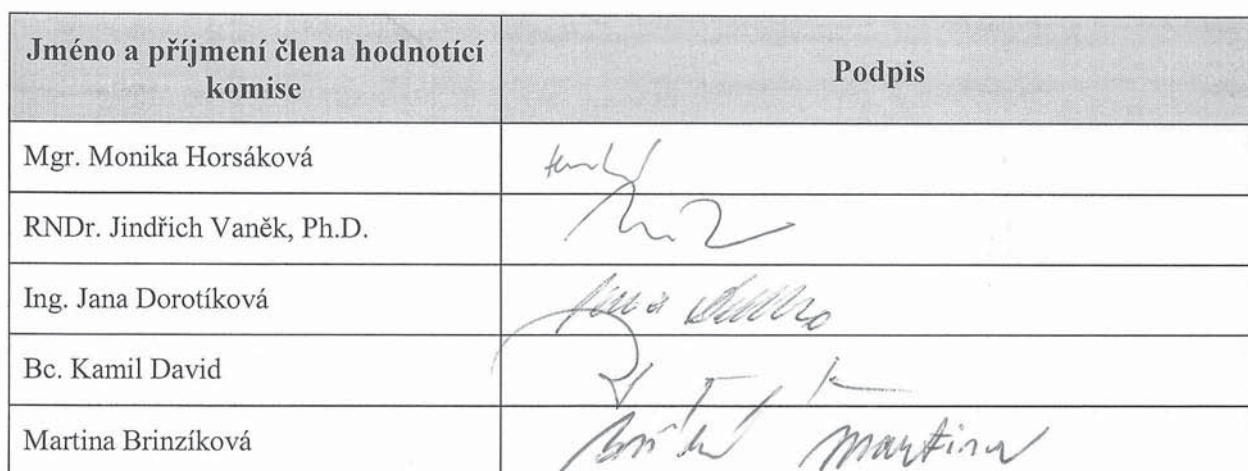 Jméno a příjmení člena hodnotící
komise
Podpis
Mgr. Monika Horsáková
RNDr. Jindřich Vaněk, Ph.D.
Ing. Jana Dorotíková
Bc. Kamil David
Martina Brinzíková
Martina